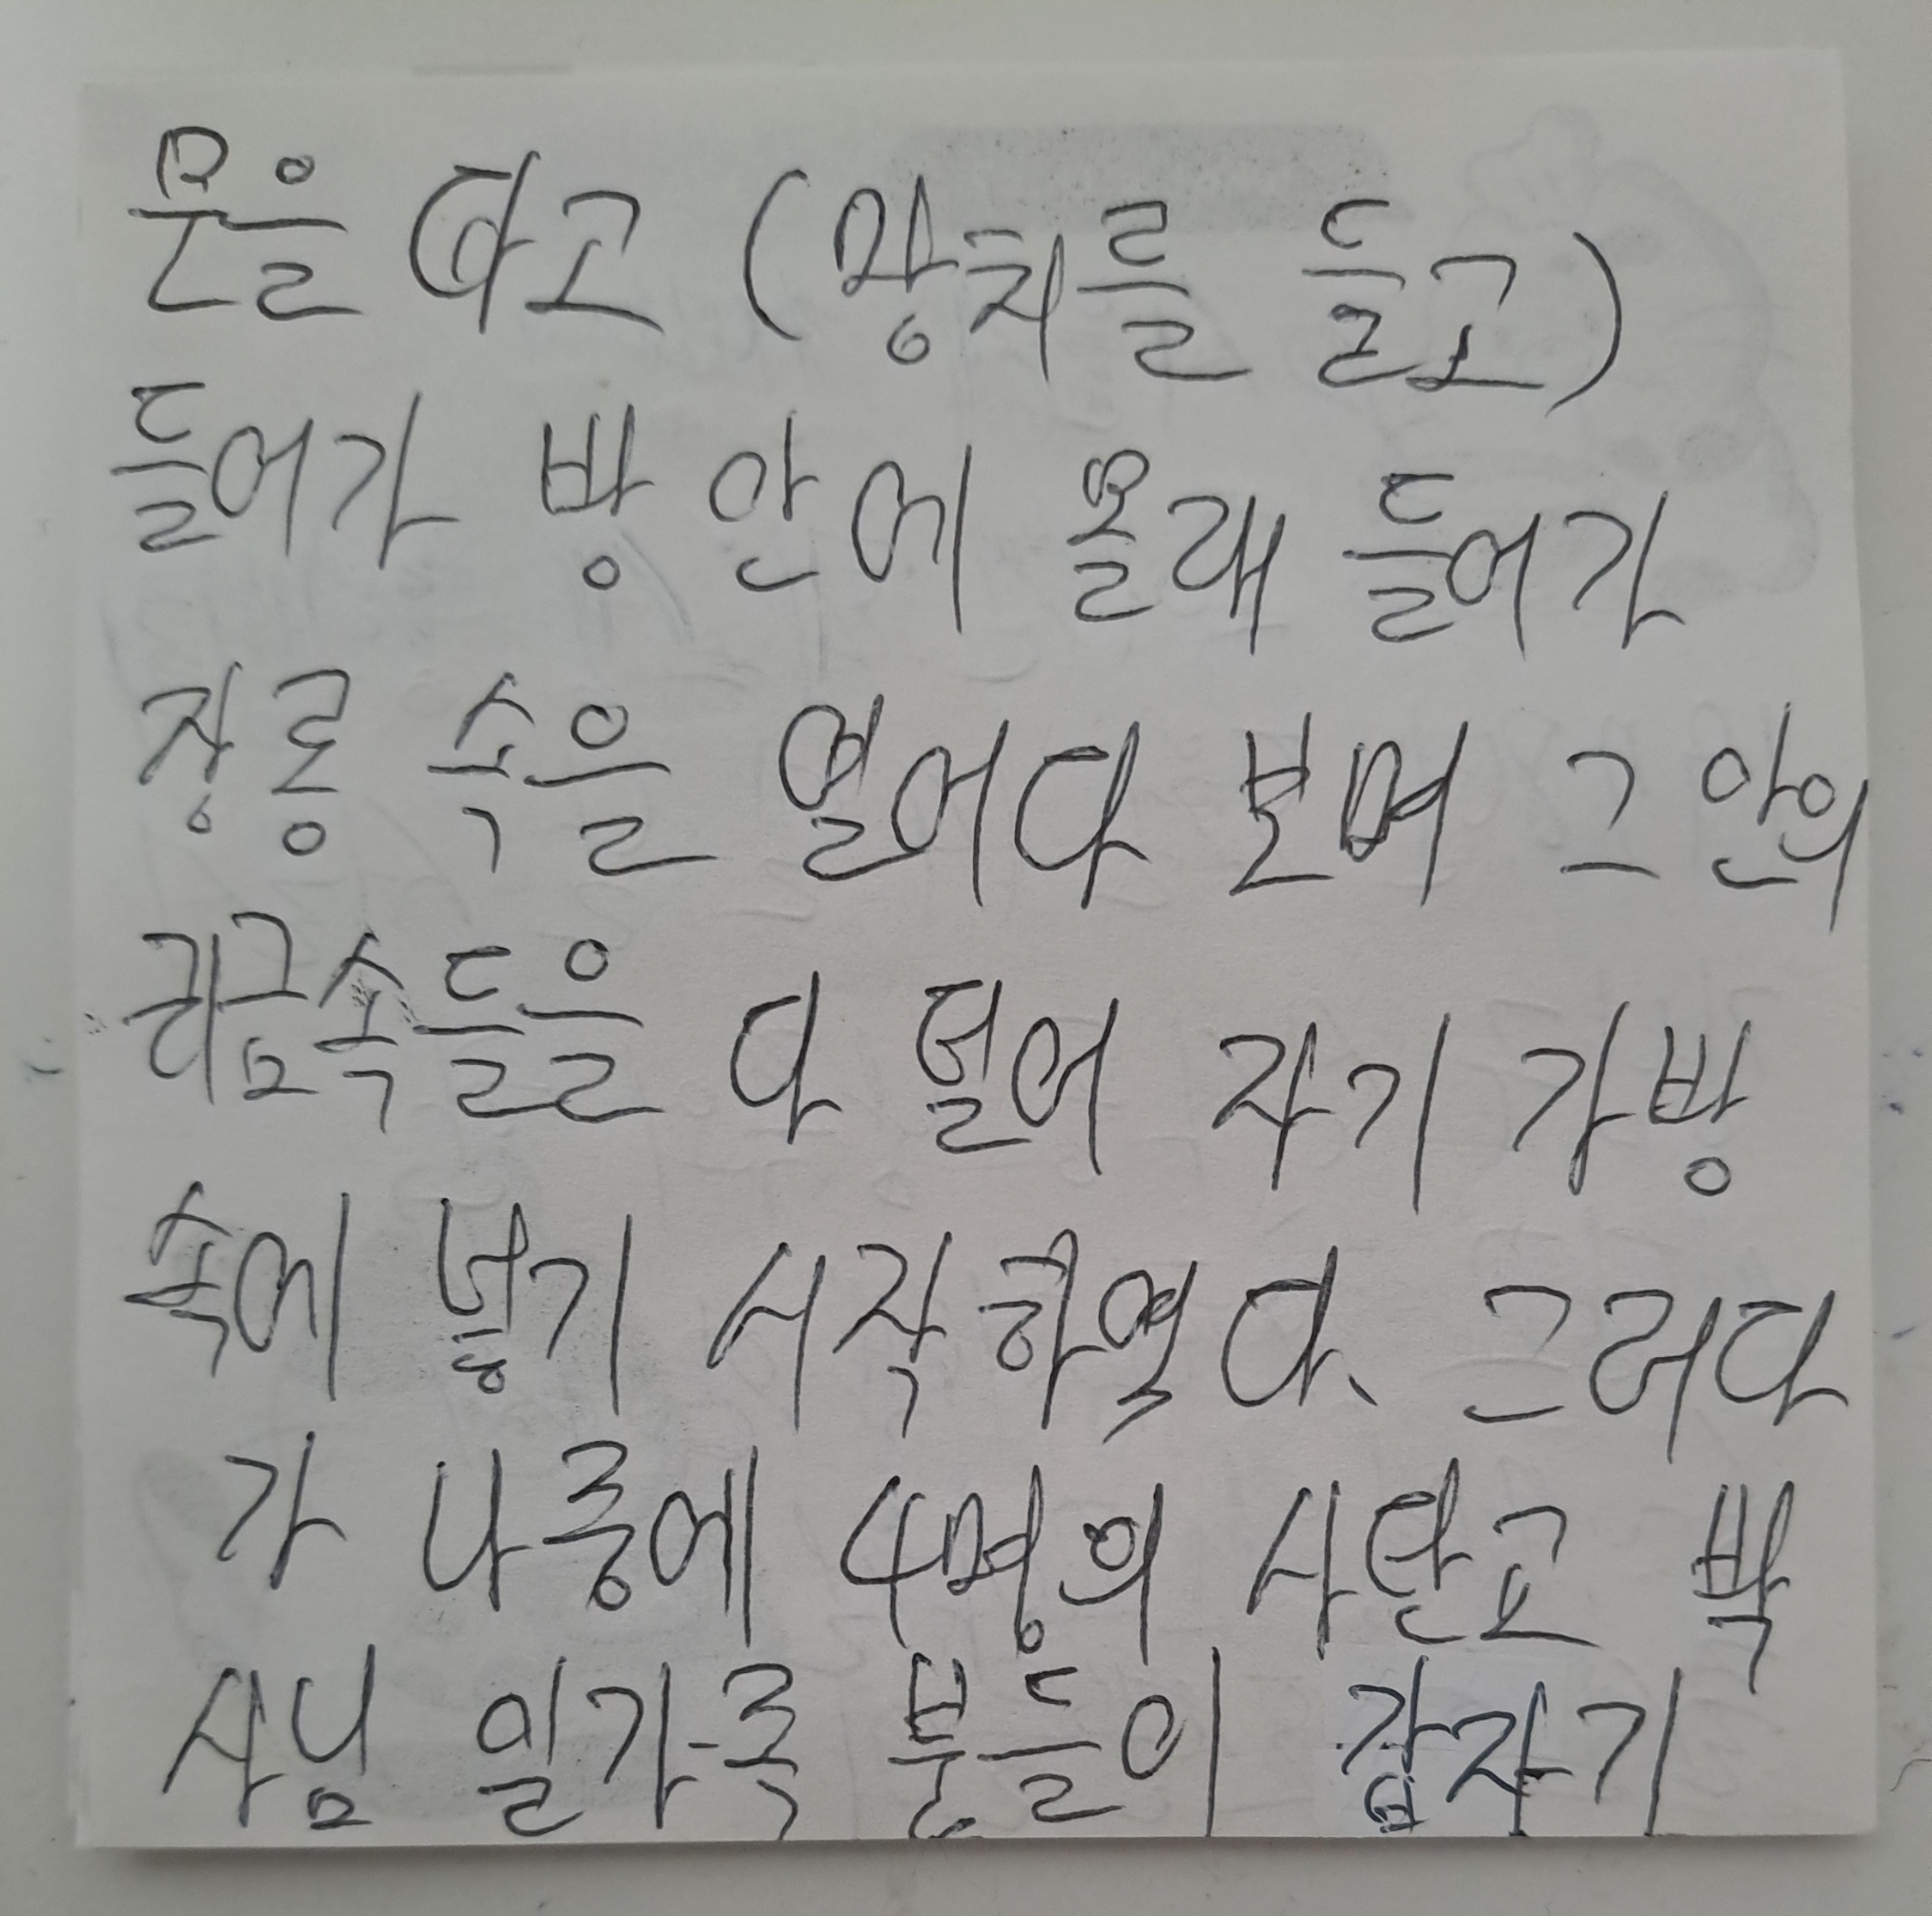 문을 따고 (망치를 들고)
들어가 방 안에 몰래 들어가
장롱 속을 열어다 보며 그 안의
귀금속들을 다 털어 자기 가방
속에 넣기 시작하였다. 그러다
가 나중에 4명의 사탄고 박
사님 일가족 분들이 갑자기